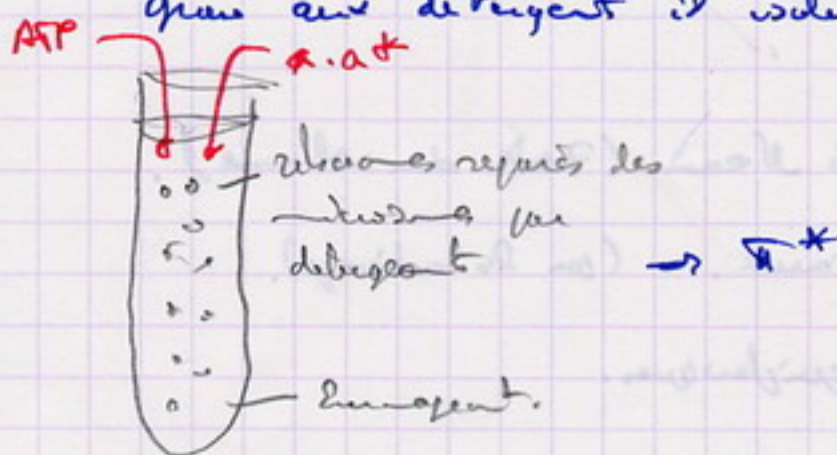 Grace aux detergent il isole
ATP
a.a*
ribosomes separés des
microsomes par
detergeant → π*
Surnageant.